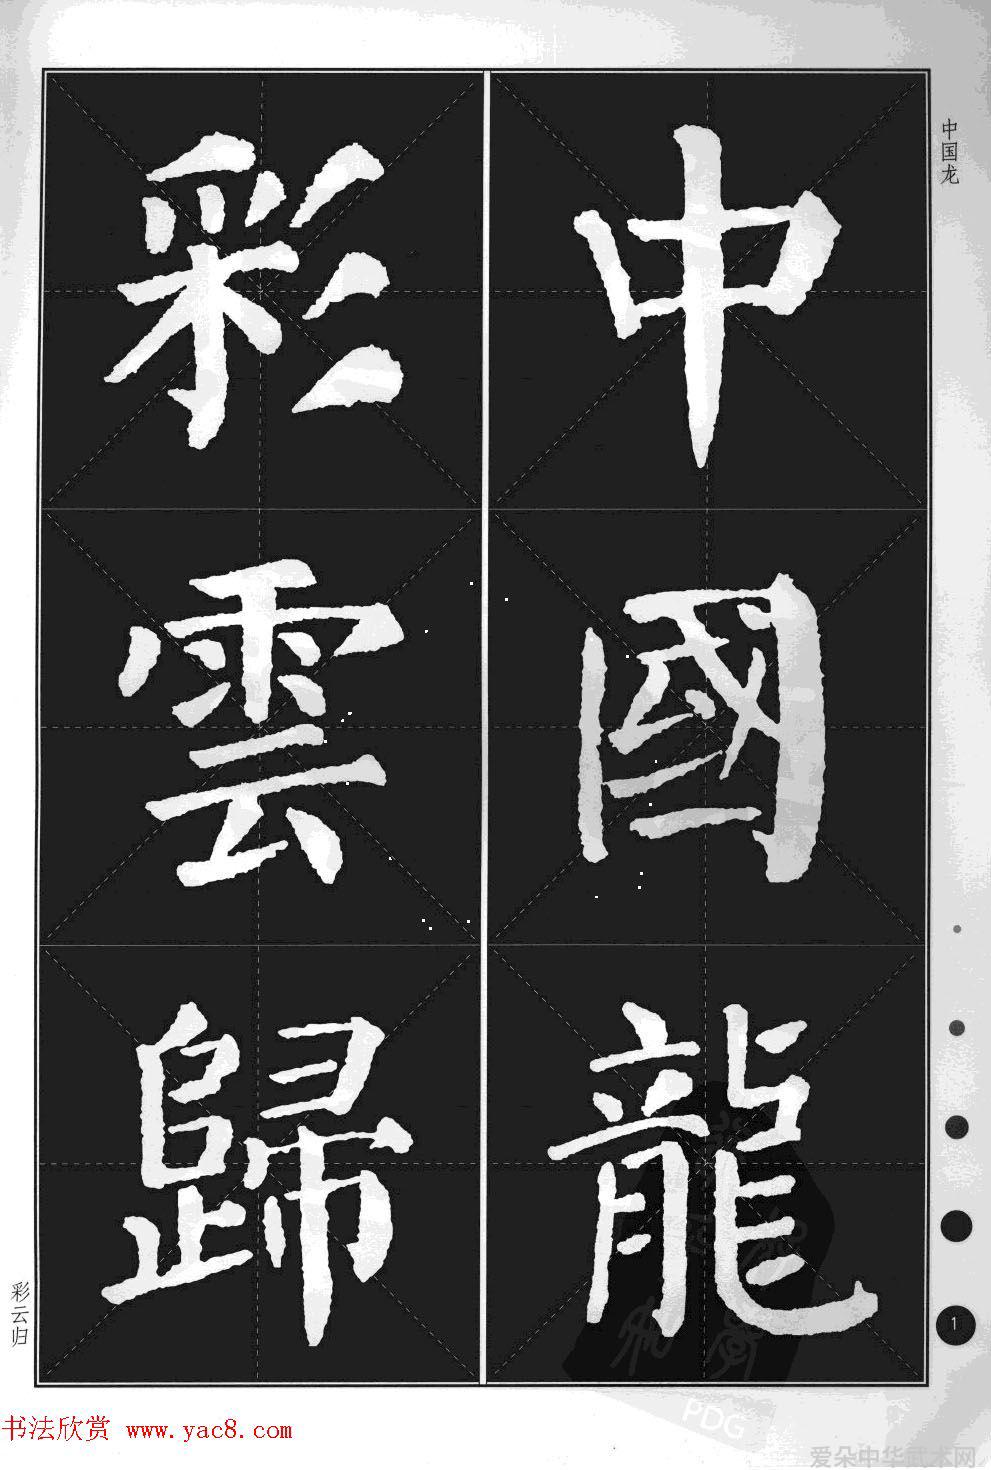 中國龍
彩雲歸
中国龙
彩云归
1
书法欣赏 www.yac8.com
PDG
爱朵中华武术网